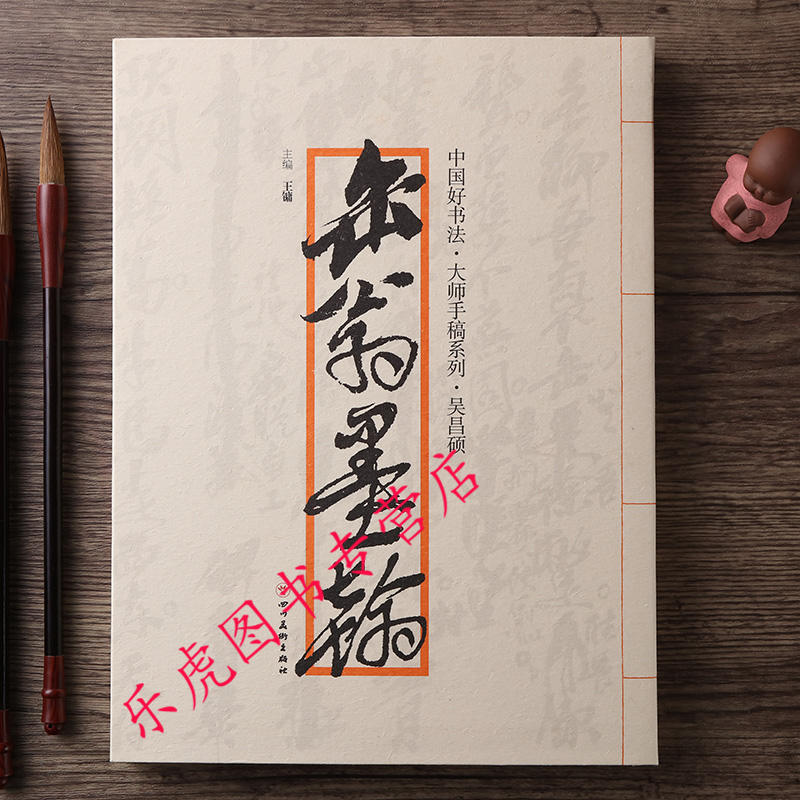 中国好书法·大师手稿系列·吴昌硕
缶翁墨翰
主编 王镛
四川美术出版社
乐虎图书专营店